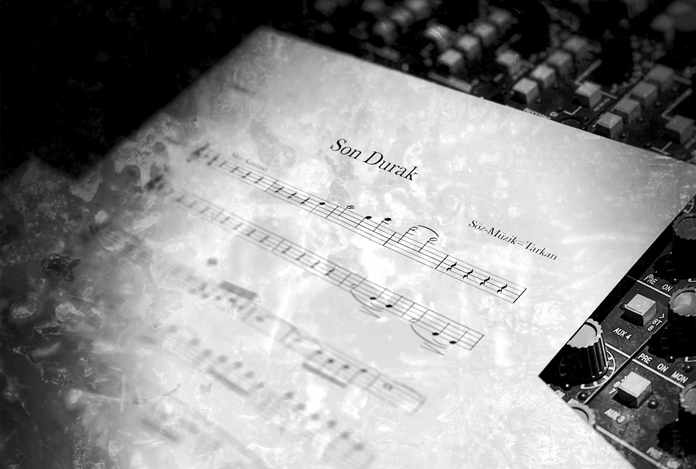 Son Durak
Söz-Müzik=Tarkan
PRE ON
AUX 4
PRE ON MON